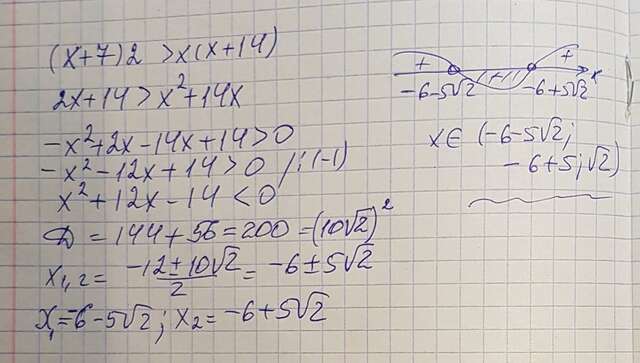 (x+7)2 >x(x+14)
2x+14>x²+14x
-x²+2x-14x+14>0
-x²-12x+14>0 /:(-1)
x²+12x-14<0
D=144+56=200=(10√2)²
x₁,₂= (-12±10√2)/2 = -6±5√2
x₁=-6-5√2; x₂=-6+5√2
+ - + x
-6-5√2 -6+5√2
x∈ (-6-5√2;
-6+5√2)